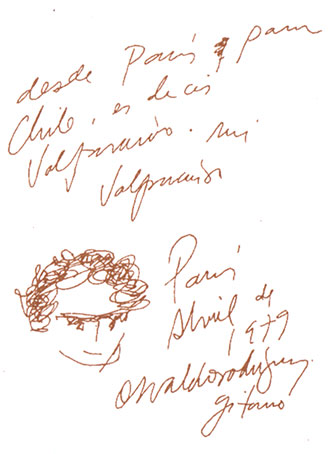 desde París para
Chile, es decir
Valparaíso. mi
Valparaíso
París
Abril de
1979
Osvaldo rodríguez
gitano